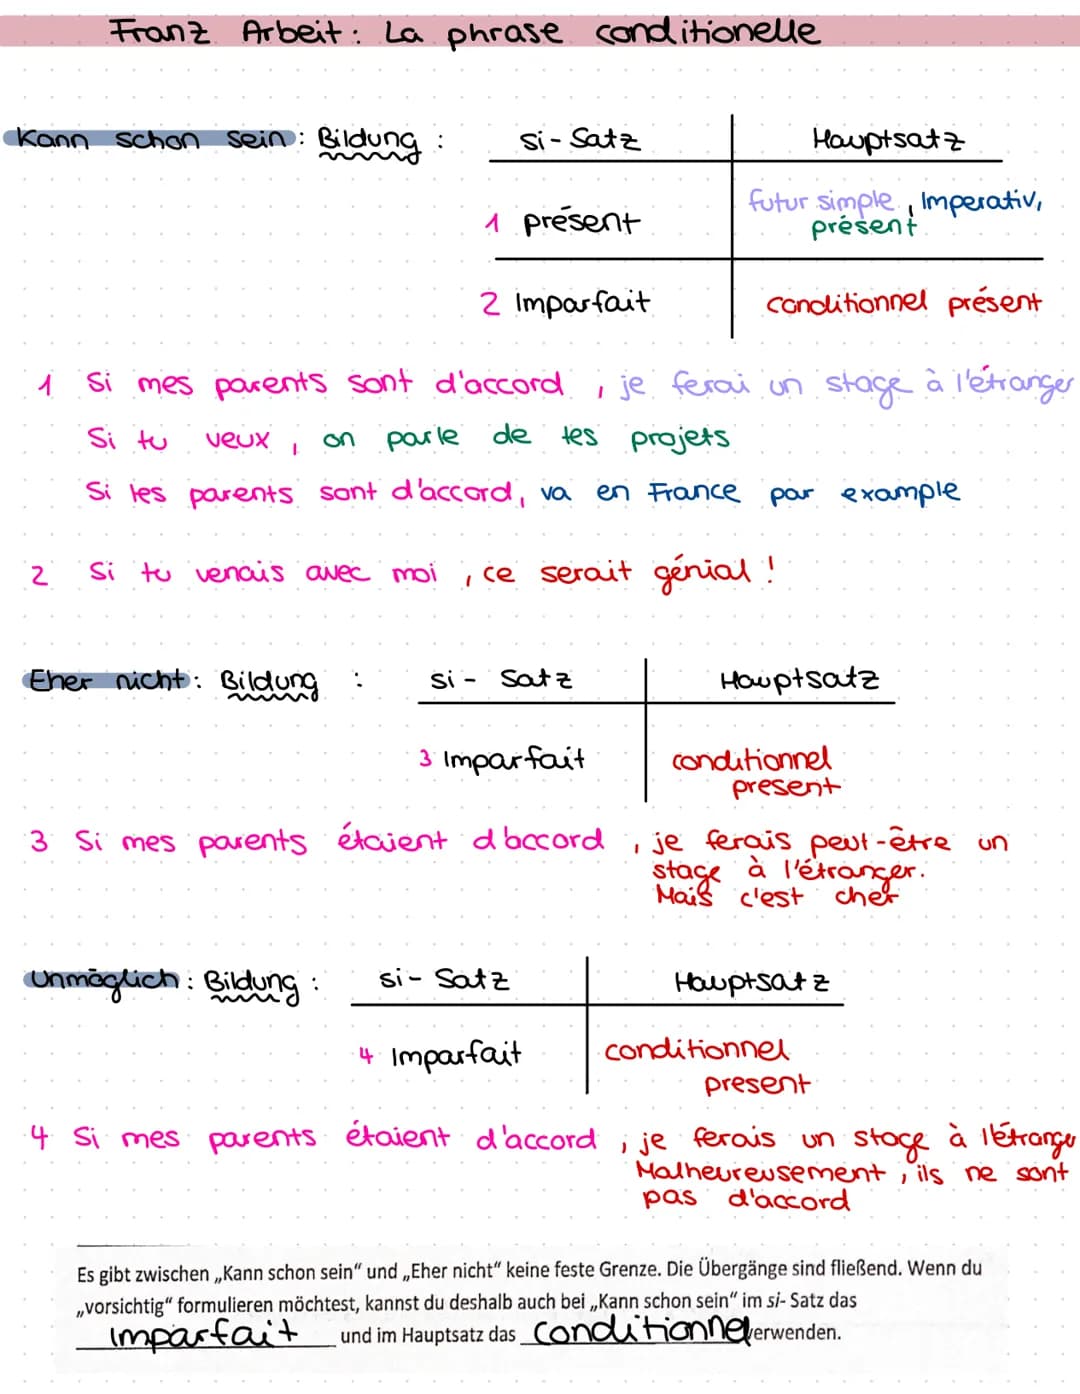 Franz Arbeit: La phrase conditionelle
Kann schon sein: Bildung: si-Satz Hauptsatz
1 présent futur simple, Imperativ, présent
2 Imparfait conditionnel présent
1 Si mes parents sont d'accord, je ferai un stage à l'étranger
Si tu veux, on parle de tes projets
Si tes parents sont d'accord, va en France par example
2 Si tu venais avec moi, ce serait génial!
Eher nicht: Bildung: si- Satz Hauptsatz
3 Imparfait conditionnel present
3 Si mes parents étaient d'accord, je ferais peut-être un
stage à l'étranger.
Mais c'est cher
Unmöglich: Bildung: si- Satz Hauptsatz
4 Imparfait conditionnel
present
4 Si mes parents étaient d'accord, je ferais un stage à l'étrange
Malheureusement, ils ne sont
pas d'accord
Es gibt zwischen „Kann schon sein“ und „Eher nicht“ keine feste Grenze. Die Übergänge sind fließend. Wenn du
„vorsichtig“ formulieren möchtest, kannst du deshalb auch bei „Kann schon sein“ im si- Satz das
Imparfait und im Hauptsatz das Conditionnel verwenden.